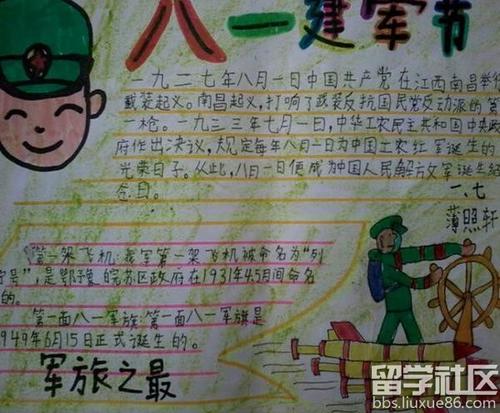 八一建军节
一九二七年八月一日中国共产党在江西南昌举行
武装起义。南昌起义,打响了武装反抗国民党反动派的第
一枪。一九三三年七月一日,中华工农民主共和国中央政
府作出决议,规定每年八月一日为中国工农红军诞生的
光荣日子。从此,八月一日便成为中国人民解放军诞生纪
念日。
一、七
薄照轩
第一架飞机:我军第一架飞机被命名为“列
宁号”,是鄂豫皖苏区政府在1931年45月间命名
的。
第一面八一军旗:第一面八一军旗是
1949年6月15日正式诞生的。
军旅之最
留学社区
bbs.liuxue86.com